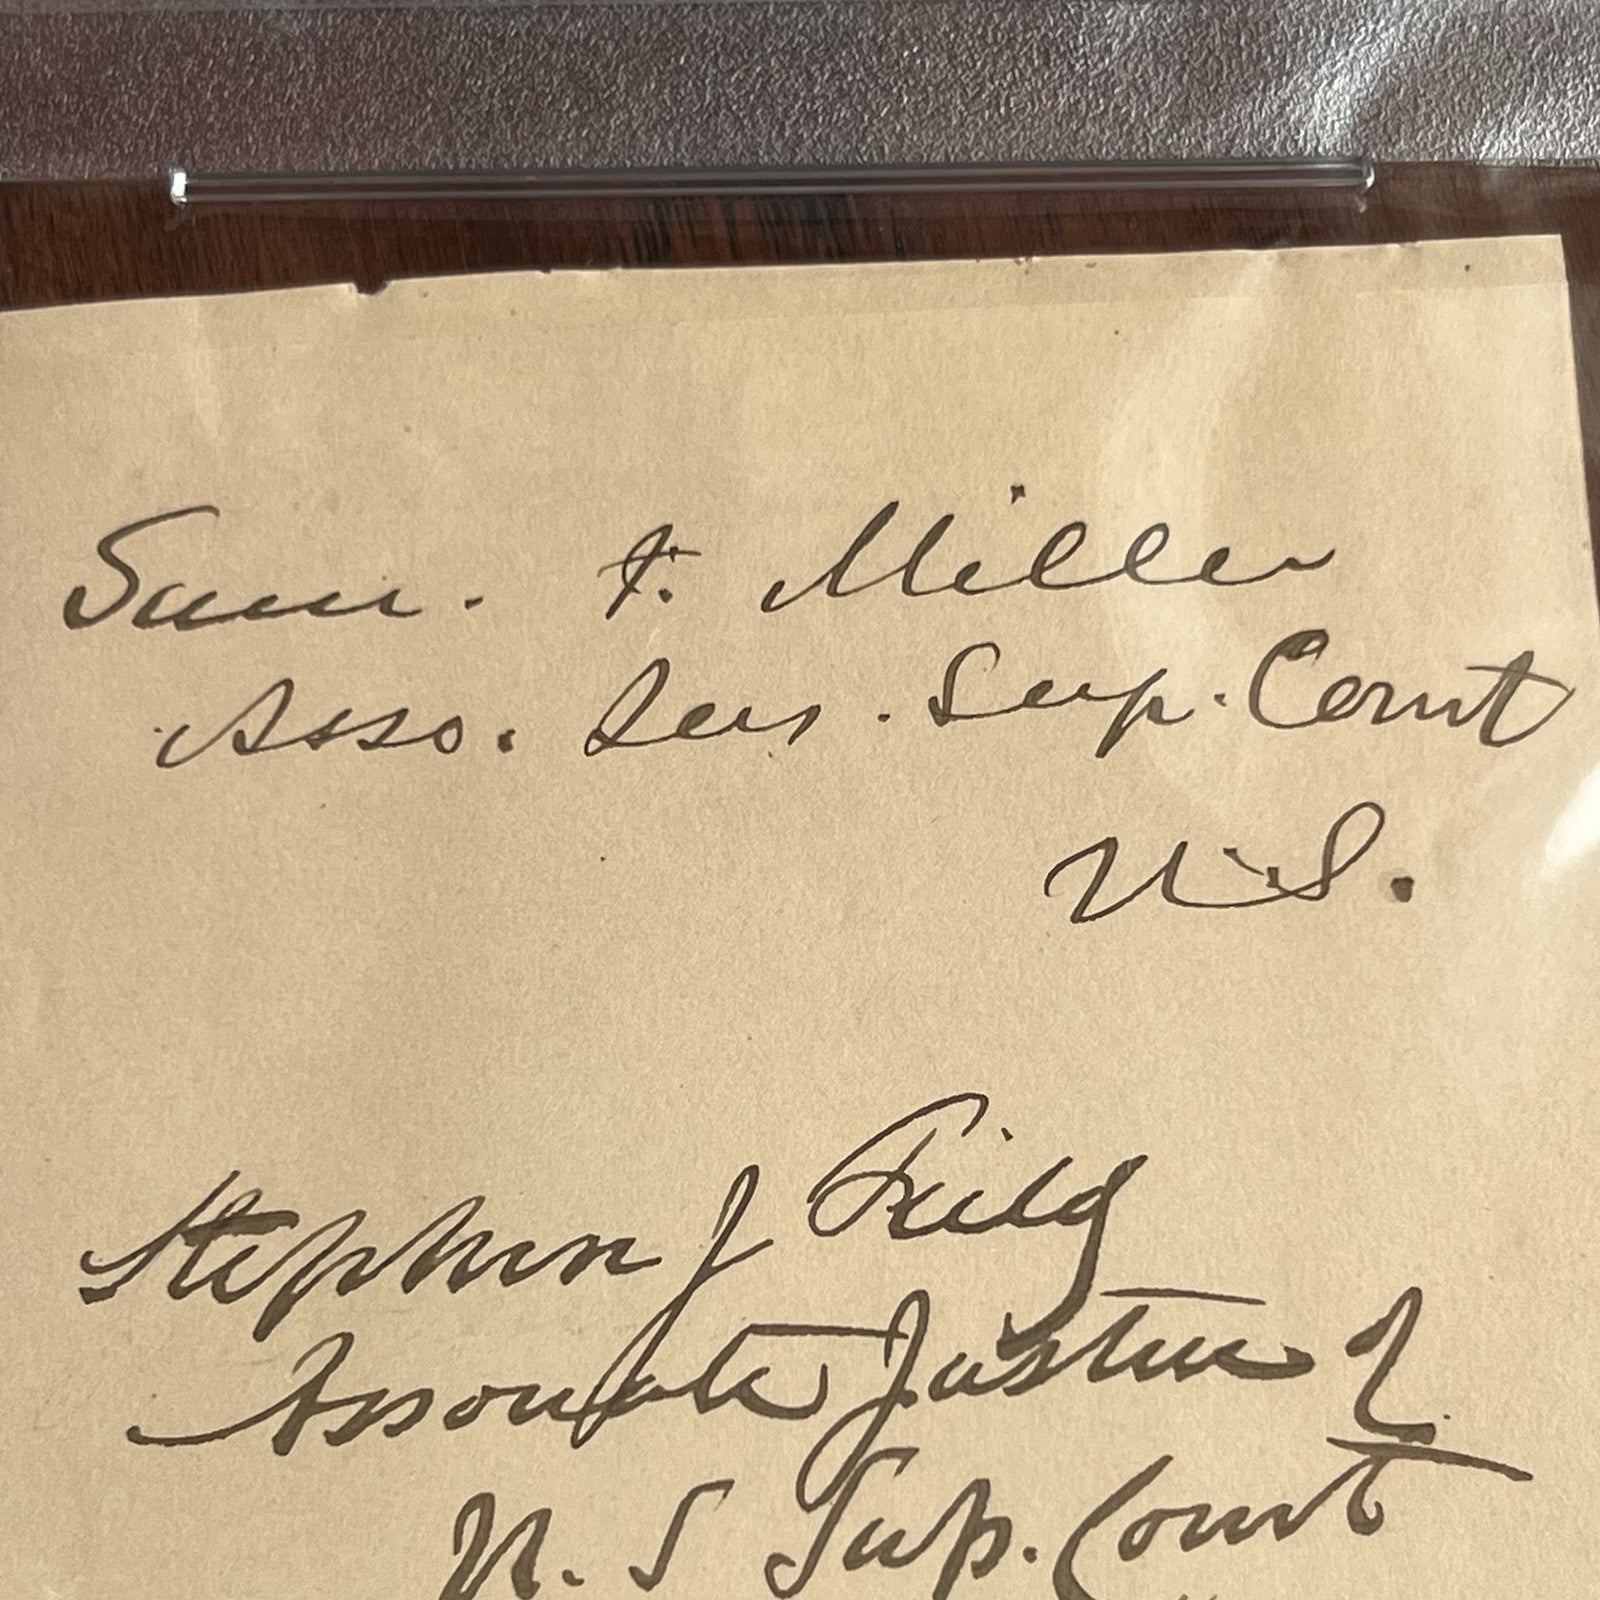 Sam. F. Miller
Asso. Jus. Sup. Court
U.S.
Stephen J Field
Associate Justice of
U. S Sup. Court